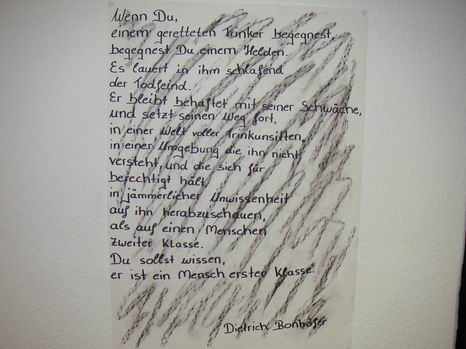 Wenn Du,
einem geretteten Trinker begegnest,
begegnest Du einem Helden.
Es lauert in ihm schlafend
der Todfeind.
Er bleibt behaftet mit seiner Schwäche,
und setzt seinen Weg fort,
in einer Welt voller Trinkunsitten,
in einer Umgebung die ihn nicht
versteht, und die sich für
berechtigt hält,
in jämmerlicher Unwissenheit
auf ihn herabzuschauen,
als auf einen Menschen
zweiter Klasse.
Du sollst wissen,
er ist ein Mensch erster Klasse.
Dietrich Bonhöfer